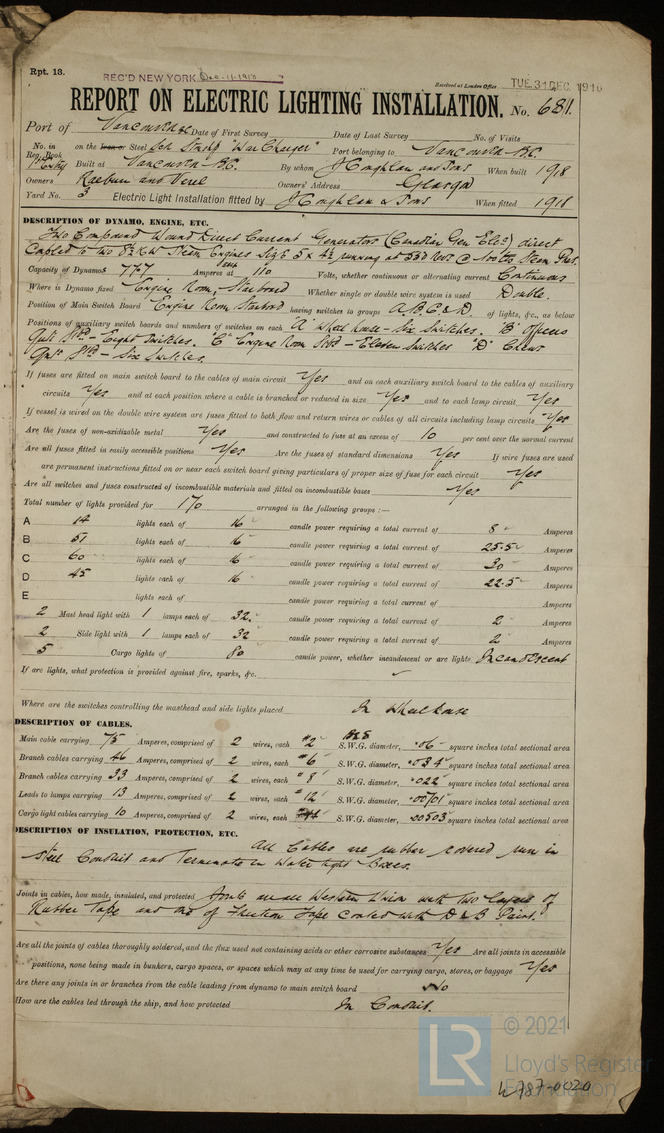 Rpt. 13.
REC'D NEW YORK Dec-11-1918
Received at London Office TUE. 31 DEC. 1918
REPORT ON ELECTRIC LIGHTING INSTALLATION. No. 681.
Port of Vancouver BC Date of First Survey Date of Last Survey No. of Visits
No. in Reg. Book on the Iron or Steel "War Charger" Port belonging to Vancouver B.C.
Built at Vancouver B.C. By whom J Coughlan and Sons When built 1918
Owners Owners' Address Glasgow
Yard No. 3 Electric Light Installation fitted by J Coughlan & Sons When fitted 1918
DESCRIPTION OF DYNAMO, ENGINE, ETC.
Two Compound Wound Direct Current Generators (Canadian Gen Elec) direct
Coupled to two 8½ K.W Steam Engines Size 5 x 4½ running at 550 Revs @ 100 lbs Steam
Capacity of Dynamos 77.7 Amperes at 110 Volts, whether continuous or alternating current Continuous
Where is Dynamo fixed Engine Room, Starboard Whether single or double wire system is used Double.
Position of Main Switch Board Engine Room Starbord having switches to groups A B C & D of lights, &c., as below
Positions of auxiliary switch boards and numbers of switches on each "A" Wheel house - Six Switches. "B" Officers
- Eight Switches. "C" Engine Room Stbd - Eleven Switches "D" Crews
- Six Switches.
If fuses are fitted on main switch board to the cables of main circuit Yes and on each auxiliary switch board to the cables of auxiliary
circuits Yes and at each position where a cable is branched or reduced in size Yes and to each lamp circuit Yes
If vessel is wired on the double wire system are fuses fitted to both flow and return wires or cables of all circuits including lamp circuits Yes
Are the fuses of non-oxidizable metal Yes and constructed to fuse at an excess of 10 per cent over the normal current
Are all fuses fitted in easily accessible positions Yes Are the fuses of standard dimensions Yes If wire fuses are used
are permanent instructions fitted on or near each switch board giving particulars of proper size of fuse for each circuit Yes
Are all switches and fuses constructed of incombustible materials and fitted on incombustible bases Yes
Total number of lights provided for 170 arranged in the following groups :—
A 14 lights each of 16 candle power requiring a total current of 8 Amperes
B 51 lights each of 16 candle power requiring a total current of 25.5 Amperes
C 60 lights each of 16 candle power requiring a total current of 30 Amperes
D 45 lights each of 16 candle power requiring a total current of 22.5 Amperes
E lights each of candle power requiring a total current of Amperes
2 Mast head light with 1 lamps each of 32 candle power requiring a total current of 2 Amperes
2 Side light with 1 lamps each of 32 candle power requiring a total current of 2 Amperes
5 Cargo lights of 80 candle power, whether incandescent or arc lights Incandescent
If arc lights, what protection is provided against fire, sparks, &c.
Where are the switches controlling the masthead and side lights placed In Wheelhouse
DESCRIPTION OF CABLES.
Main cable carrying 75 Amperes, comprised of 2 wires, each #2 B&S S.W.G. diameter, .06 square inches total sectional area
Branch cables carrying 46 Amperes, comprised of 2 wires, each #6 S.W.G. diameter, .034 square inches total sectional area
Branch cables carrying 33 Amperes, comprised of 2 wires, each #8 S.W.G. diameter, .022 square inches total sectional area
Leads to lamps carrying 13 Amperes, comprised of 2 wires, each #12 S.W.G. diameter, .00701 square inches total sectional area
Cargo light cables carrying 10 Amperes, comprised of 2 wires, each S.W.G. diameter, .00503 square inches total sectional area
DESCRIPTION OF INSULATION, PROTECTION, ETC.
All Cables are rubber covered run in
Steel Conduit and Terminate in Water tight Boxes.
Joints in cables, how made, insulated, and protected Joints are all Western Union with two layers of
Rubber Tape and one of Friction Tape Coated with P & B Paint.
Are all the joints of cables thoroughly soldered, and the flux used not containing acids or other corrosive substances Yes Are all joints in accessible
positions, none being made in bunkers, cargo spaces, or spaces which may at any time be used for carrying cargo, stores, or baggage Yes
Are there any joints in or branches from the cable leading from dynamo to main switch board No
How are the cables led through the ship, and how protected In Conduit.
LR © 2021
Lloyd's Register
Foundation
W787-0020